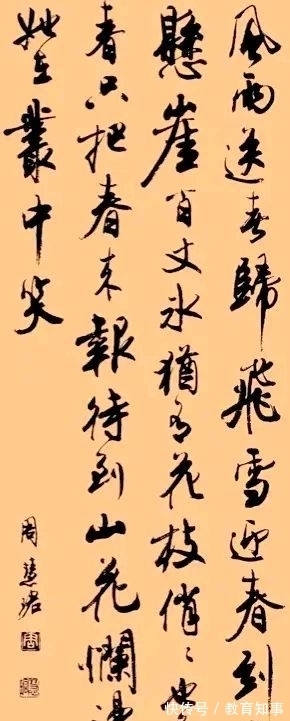 風雨送春歸飛雪迎春到
懸崖百丈冰猶有花枝俏〻也
春只把春来報待到山花爛漫
她在叢中笑
周慧珺
周
快传号 / 教育知事